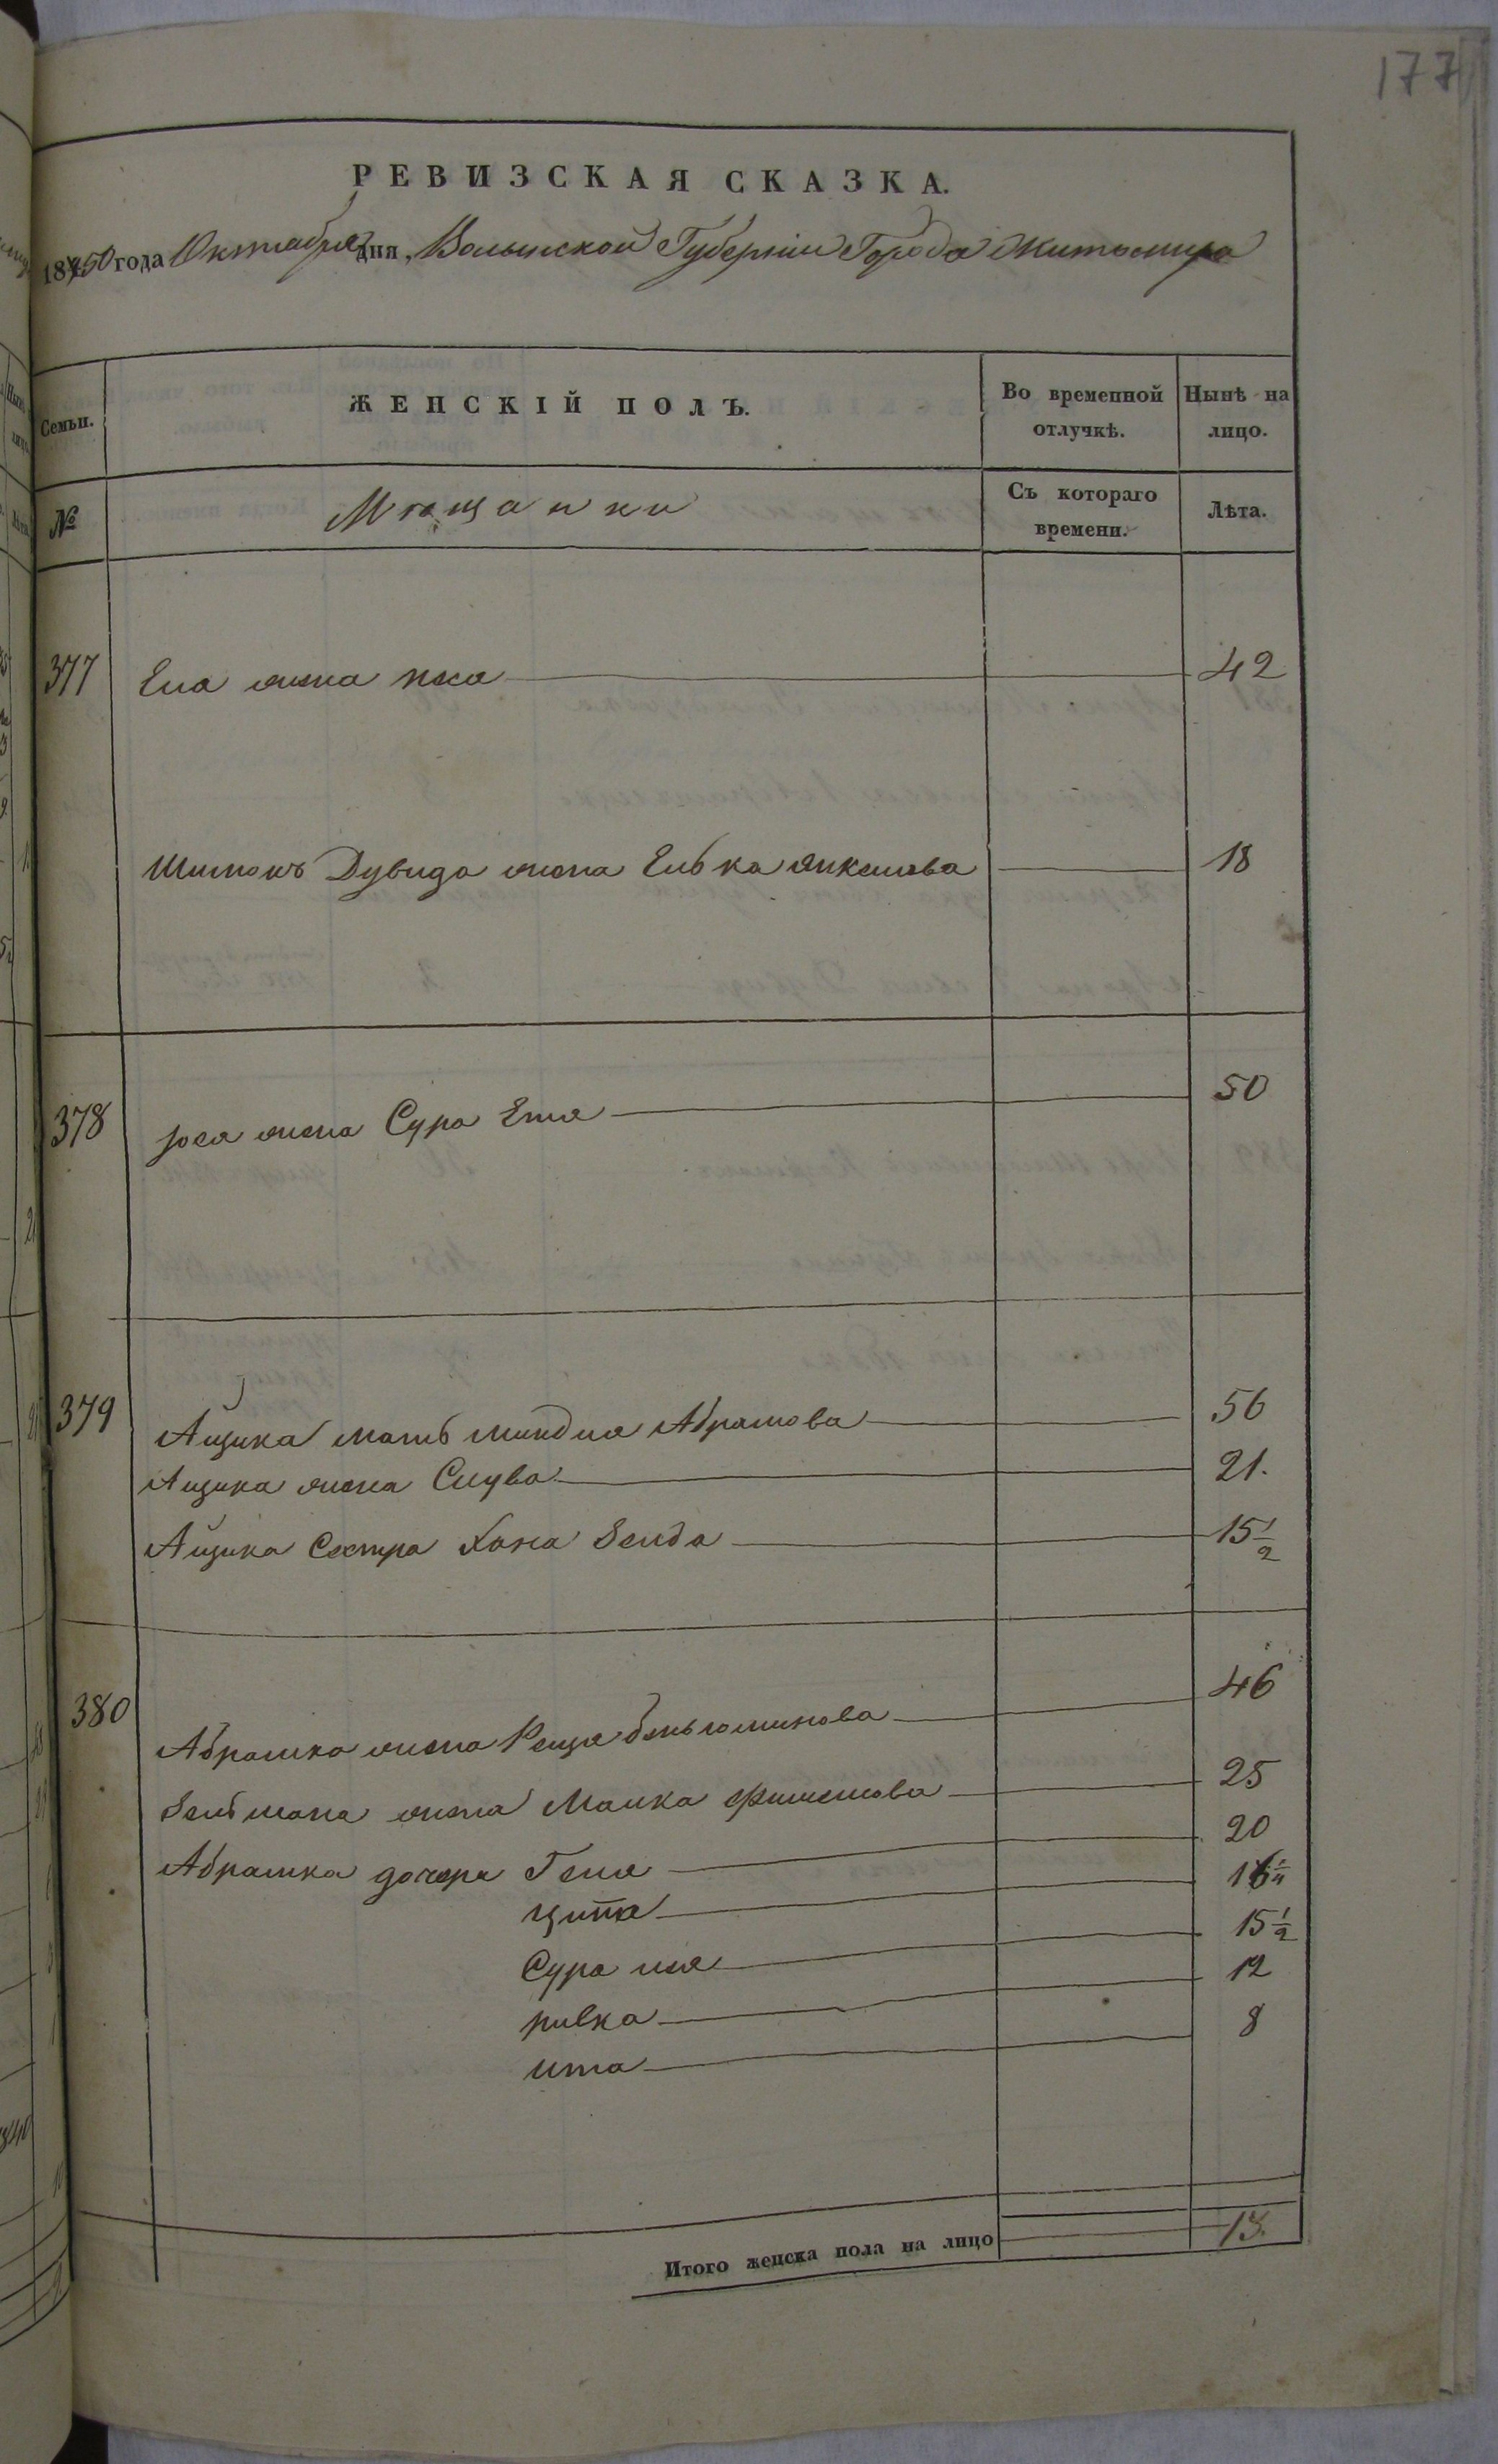 177
РЕВИЗСКАЯ СКАЗКА.
1850 года Октября дня, Волынской Губерніи Города Житомира
Семьи.
ЖЕНСКІЙ ПОЛЪ.
Во временной отлучкѣ.
Нынѣ на лицо.
№
Мѣщанки
Съ котораго времени.
Лѣта.
377 Его жена Хая 42
Дувида жена Елька Янкелева 18
378 жена Сура Етя 50
379 Айзика мать Миндля Абрамова 56
Айзика жена Слува 21.
Айзика Сестра Хана Зелда 15 1/2
380 Абрамка жена Беньюминова 46
Зельмана жена Малка Фишелова 25
Абрамка дочери Геня 20
Ципа 16 1/2
Сура 15 1/2
ривка 12
ита 8
Итого женска пола на лицо 13.